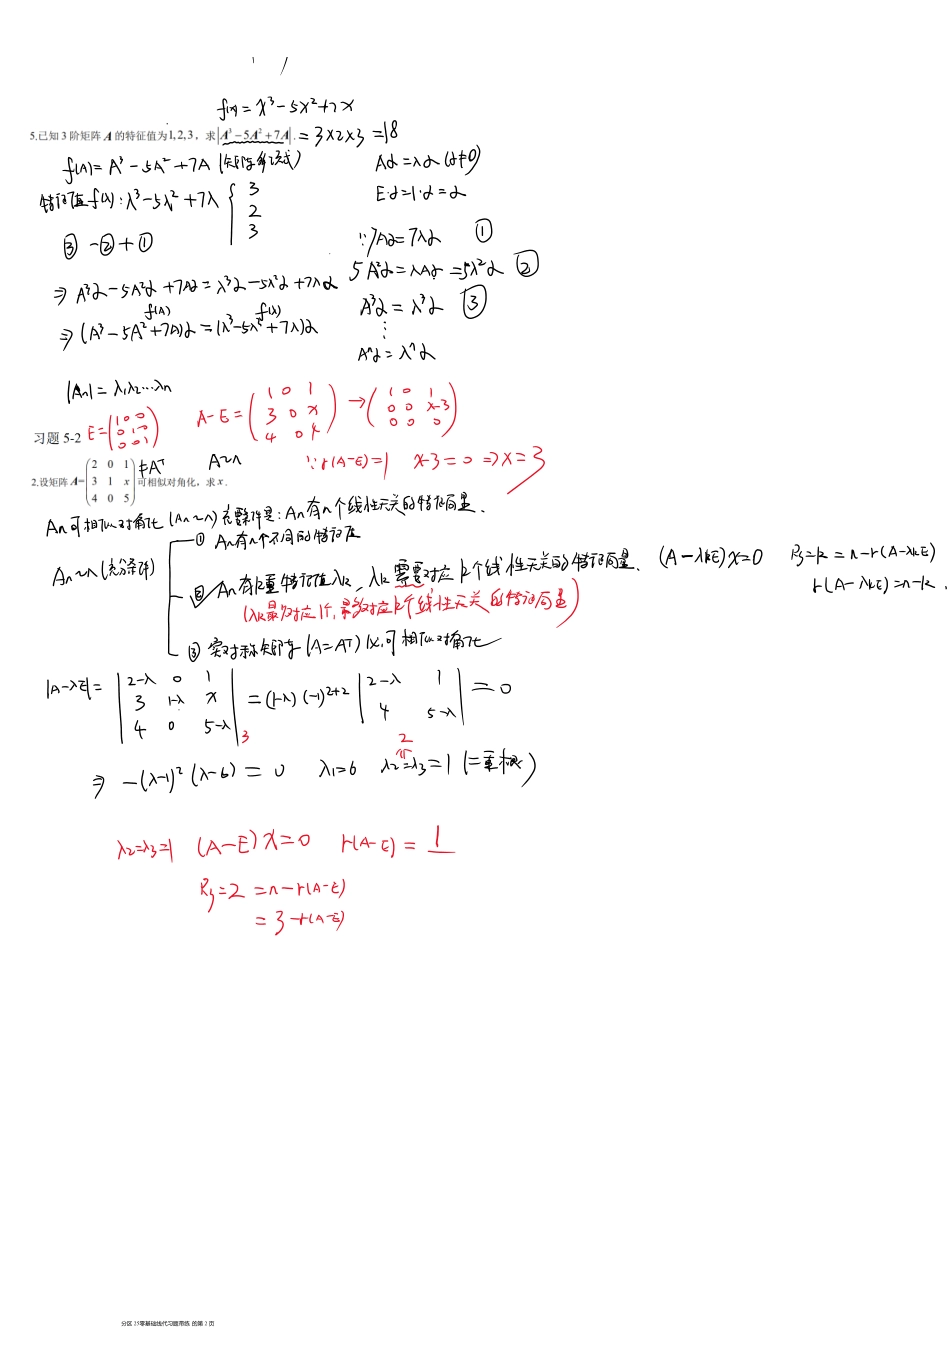 f(x)=x³-5x²+7x
5.已知 3 阶矩阵 A 的特征值为 1,2,3，求 |A³-5A²+7A|. =3×2×3 =18
f(A)=A³-5A²+7A (矩阵多项式)
Aα=λα (α≠0)
特征值f(λ):λ³-5λ²+7λ { 3 2 3
E·α=1·α=α
③-②+①
∵7Aα=7λα ①
5A²α=λAα=5λ²α ②
⇒ A³α-5A²α+7Aα=λ³α-5λ²α+7λα
A³α=λ³α ③
f(A) f(λ)
⇒ (A³-5A²+7A)α=(λ³-5λ²+7λ)α
⋮
Aⁿα=λⁿα
|An|=λ₁λ₂…λn
习题 5-2
E=(1 0 0; 0 1 0; 0 0 1)
A-E=(1 0 1; 3 0 x; 4 0 4) →(1 0 1; 0 0 x-3; 0 0 0)
2.设矩阵 A=(2 0 1; 3 1 x; 4 0 5) 可相似对角化，求 x .
≠Aᵀ
A~Λ
∵r(A-E)=1 x-3=0 ⇒x=3
An可相似对角化 (An~Λ) 充要条件是：An有n个线性无关的特征向量.
An~Λ (充分条件)
① An有n个不同的特征值
② An有k重特征值λk, λk需要对应k个线性无关的特征向量. (A-λkE)x=0 Rs=k=n-r(A-λkE)
r(A-λkE)=n-k.
(λk最少对应1个,最多对应k个线性无关的特征向量)
③ 实对称矩阵 (A=Aᵀ) 必可相似对角化
|A-λE|= |2-λ 0 1; 3 1-λ x; 4 0 5-λ|₃ =(1-λ)(-1)²⁺² |2-λ 1; 4 5-λ| =0
2
⇒ -(λ-1)²(λ-6)=0 λ₁=6 λ₂=λ₃=1 (二重根)
λ₂=λ₃=1 (A-E)x=0 r(A-E)=1
Rs=2 =n-r(A-E)
=3-r(A-E)
分区 25零基础线代习题带练 的第 2 页